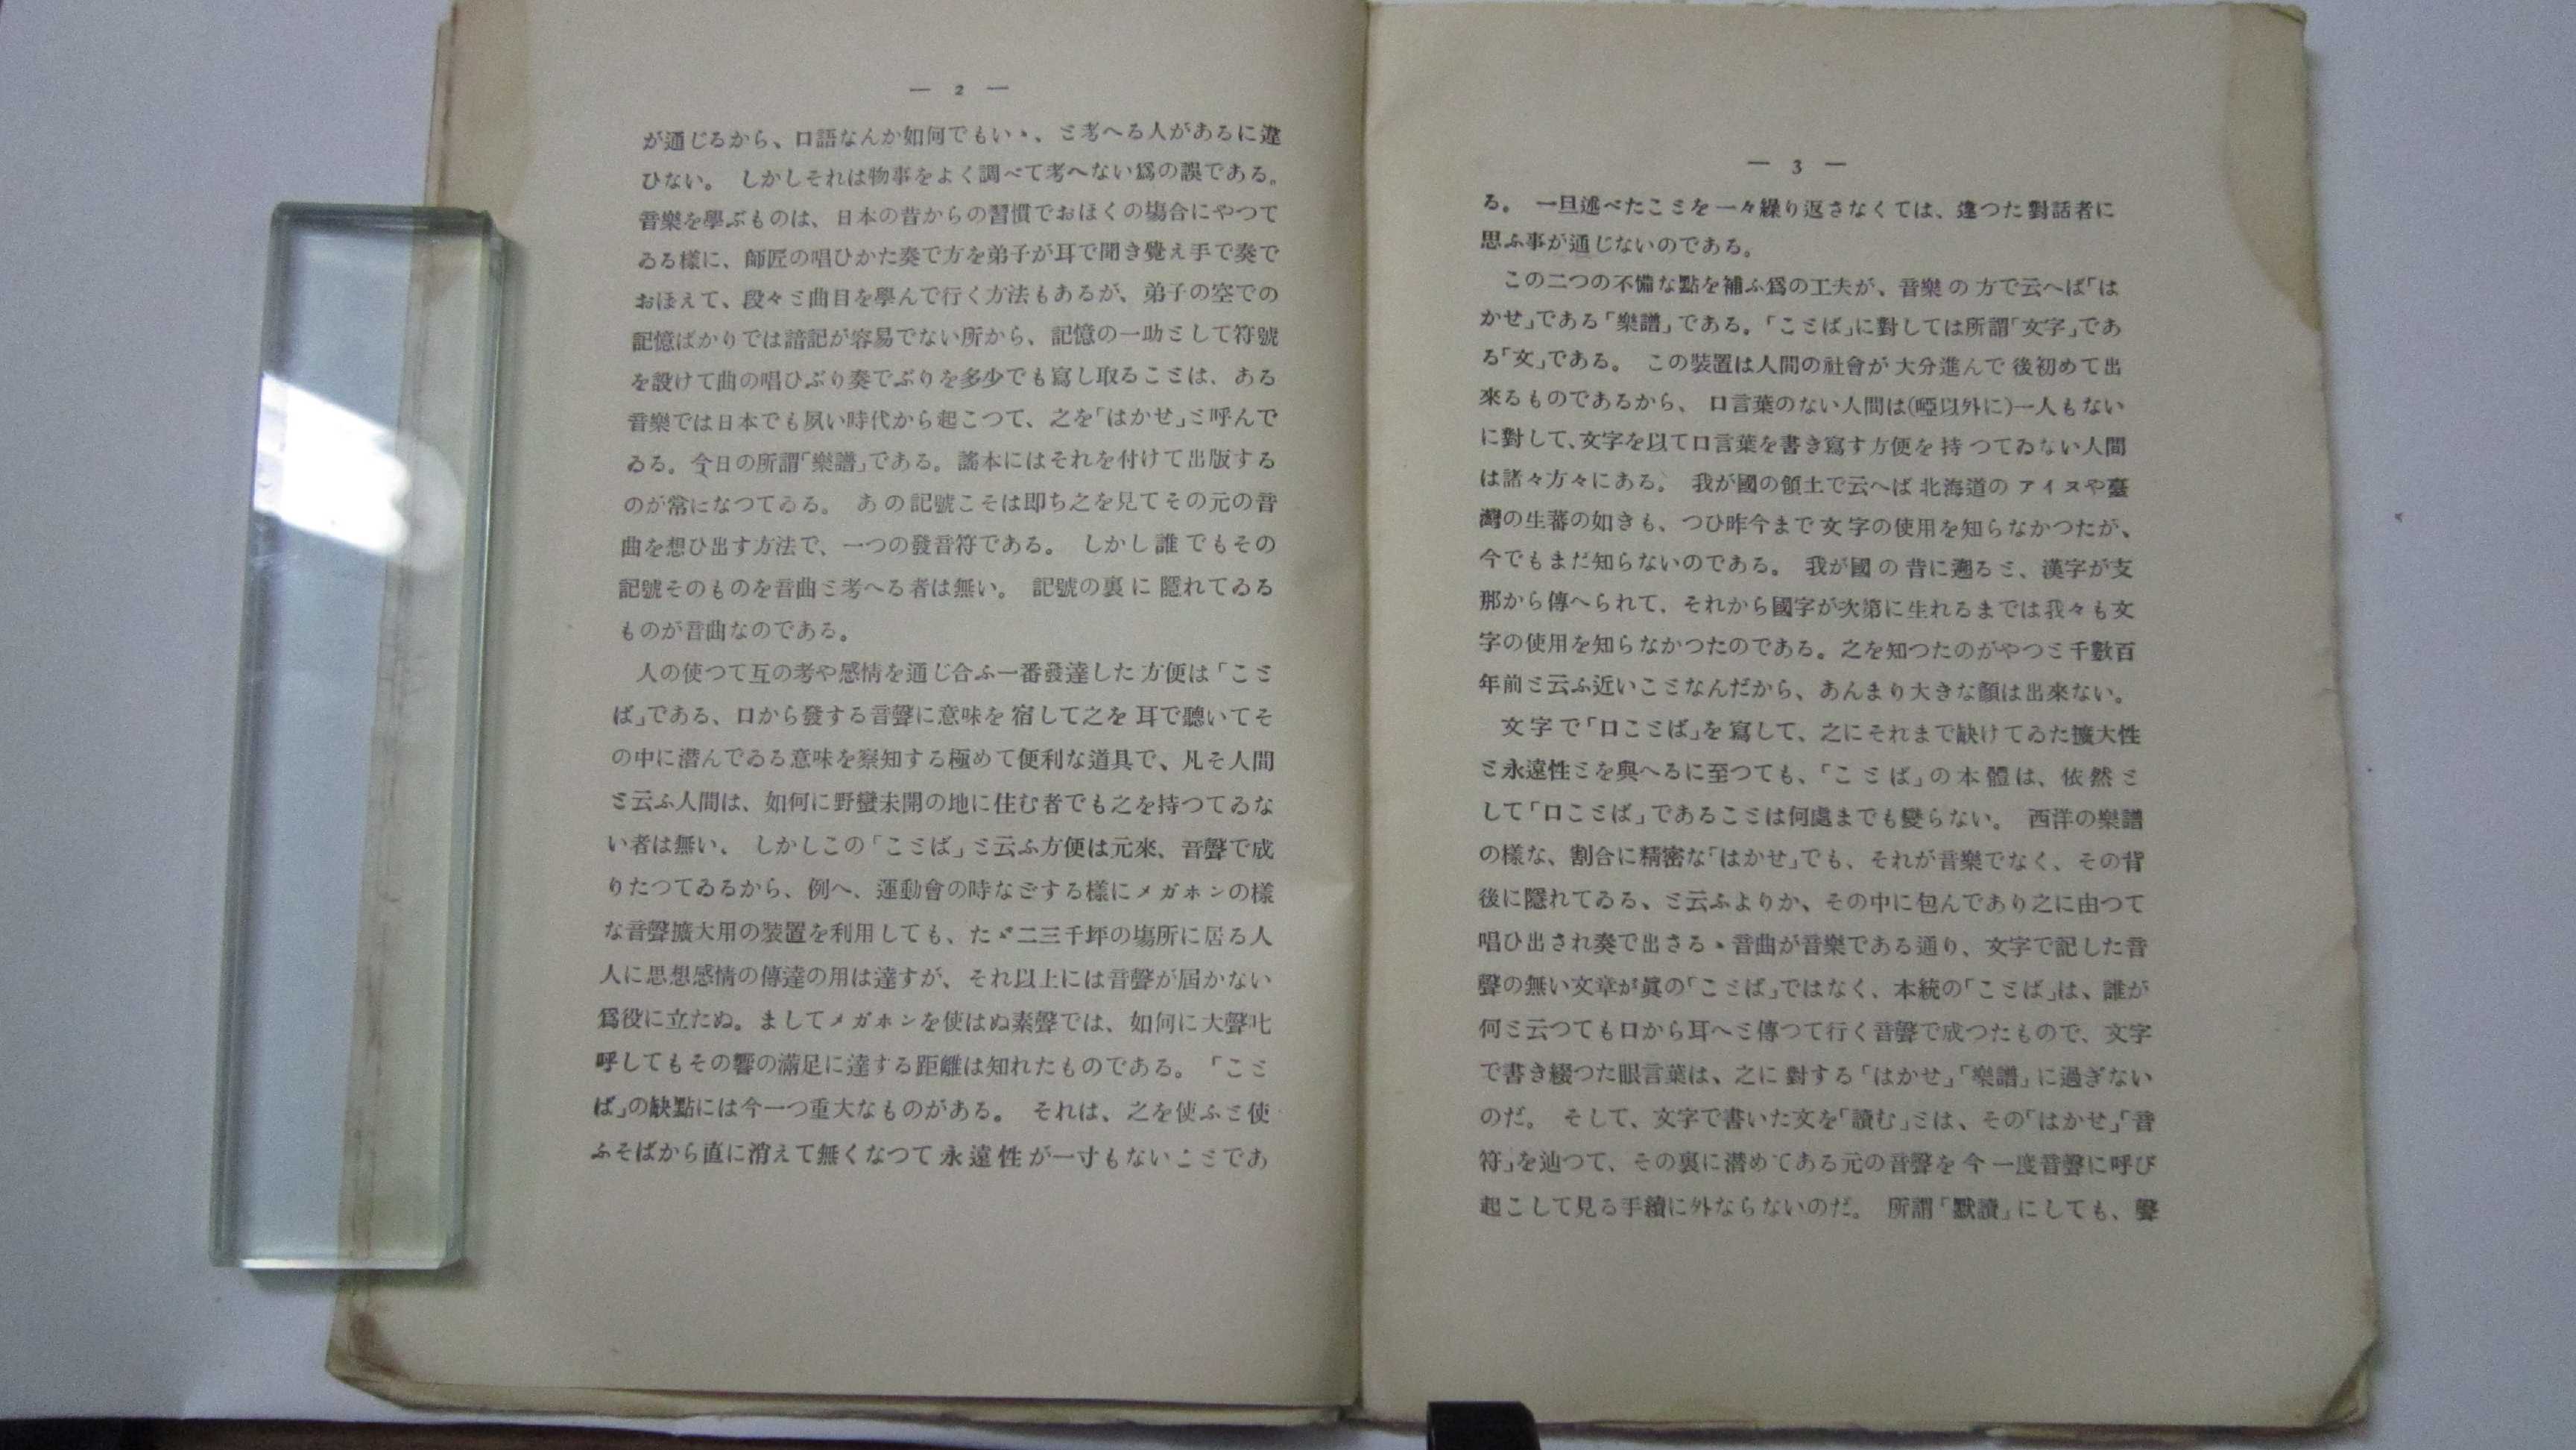 — 2 —
が通じるから、口語なんか如何でもいゝ、と考へる人があるに違
ひない。 しかしそれは物事をよく調べて考へない爲の誤である。
音樂を學ぶものは、日本の昔からの習慣でおほくの塲合にやつて
ゐる樣に、師匠の唱ひかた奏で方を弟子が耳で聞き覺え手で奏で
おぼえて、段々と曲目を學んで行く方法もあるが、弟子の空での
記憶ばかりでは諳記が容易でない所から、記憶の一助として符號
を設けて曲の唱ひぶり奏でぶりを多少でも寫し取ることは、ある
音樂では日本でも夙い時代から起こつて、之を「はかせ」と呼んで
ゐる。今日の所謂「樂譜」である。謠本にはそれを付けて出版する
のが常になつてゐる。 あの記號こそは即ち之を見てその元の音
曲を想ひ出す方法で、一つの發音符である。 しかし誰でもその
記號そのものを音曲と考へる者は無い。 記號の裏に隱れてゐる
ものが音曲なのである。
人の使つて互の考や感情を通じ合ふ一番發達した方便は「こと
ば」である、口から發する音聲に意味を宿して之を耳で聽いてそ
の中に潜んでゐる意味を察知する極めて便利な道具で、凡そ人間
と云ふ人間は、如何に野蠻未開の地に住む者でも之を持つてゐな
い者は無い、 しかしこの「ことば」と云ふ方便は元來、音聲で成
りたつてゐるから、例へ、運動會の時などする樣にメガホンの樣
な音聲擴大用の裝置を利用しても、たゞ二三千坪の塲所に居る人
人に思想感情の傳達の用は達すが、それ以上には音聲が屆かない
爲役に立たぬ。ましてメガホンを使はぬ素聲では、如何に大聲叱
呼してもその響の滿足に達する距離は知れたものである。「こと
ば」の缺點には今一つ重大なものがある。 それは、之を使ふと使
ふそばから直に消えて無くなつて永遠性が一寸もないことであ
— 3 —
る。 一旦述べたことを一々繰り返さなくては、違つた對話者に
思ふ事が通じないのである。
この二つの不備な點を補ふ爲の工夫が、音樂の方で云へば「は
かせ」である「樂譜」である。「ことば」に對しては所謂「文字」であ
る「文」である。 この裝置は人間の社會が大分進んで後初めて出
來るものであるから、 口言葉のない人間は(啞以外に)一人もない
に對して、文字を以て口言葉を書き寫す方便を持つてゐない人間
は諸々方々にある。 我が國の領土で云へば北海道のアイヌや臺
灣の生蕃の如きも、つひ昨今まで文字の使用を知らなかつたが、
今でもまだ知らないのである。 我が國の昔に遡ると、漢字が支
那から傳へられて、それから國字が次第に生れるまでは我々も文
字の使用を知らなかつたのである。之を知つたのがやつと千數百
年前と云ふ近いことなんだから、あんまり大きな顏は出來ない。
文字で「口ことば」を寫して、之にそれまで缺けてゐた擴大性
と永遠性とを與へるに至つても、「ことば」の本體は、依然と
して「口ことば」であることは何處までも變らない。 西洋の樂譜
の樣な、割合に精密な「はかせ」でも、それが音樂でなく、その背
後に隱れてゐる、と云ふよりか、その中に包んであり之に由つて
唱ひ出され奏で出さるゝ音曲が音樂である通り、文字で記した音
聲の無い文章が眞の「ことば」ではなく、本統の「ことば」は、誰が
何と云つても口から耳へと傳つて行く音聲で成つたもので、文字
で書き綴つた眼言葉は、之に對する「はかせ」「樂譜」に過ぎない
のだ。 そして、文字で書いた文を「讀む」とは、その「はかせ」「音
符」を辿つて、その裏に潜めてある元の音聲を今一度音聲に呼び
起こして見る手續に外ならないのだ。 所謂「默讀」にしても、聲